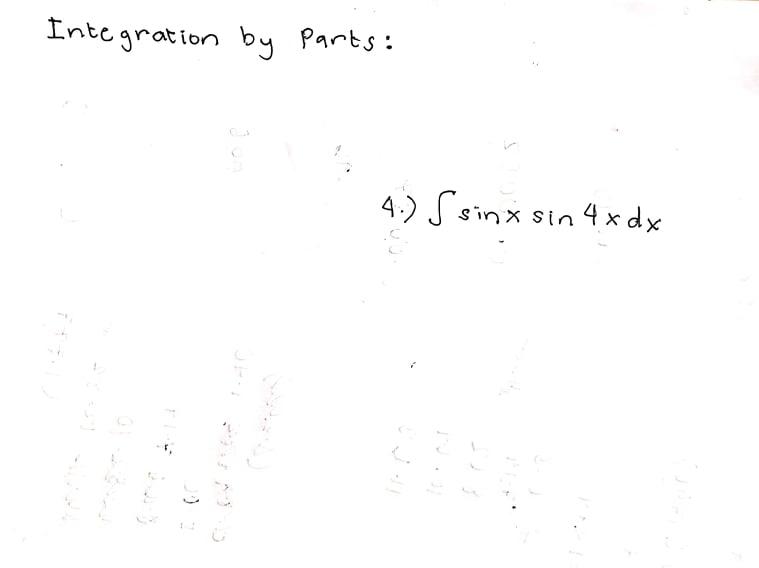 Integration by Parts:
4.) ∫ sin x sin 4x dx